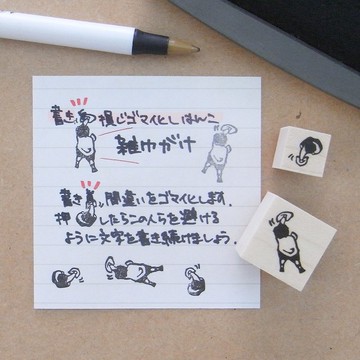 書き損じゴマイヒしはんこ
雑巾がけ
書き間違いをゴマイヒします。
押したらこの人らを避ける
ように文字を書き続けましょう。